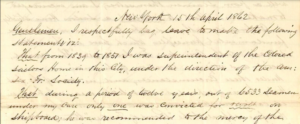 New York 15th April 1862
Gentlemen, I respectfully beg leave to make the following
statements viz
That from 1839 to 1851 I was Superintendent of the Colored
Sailors Home in this City, under the direction of the Am:
Sea: Fr: Society.
That during a period of twelve years, out of 6533 Seamen
under my care only one was convicted for revolt on
Shipboard; he was recommended to the mercy of the